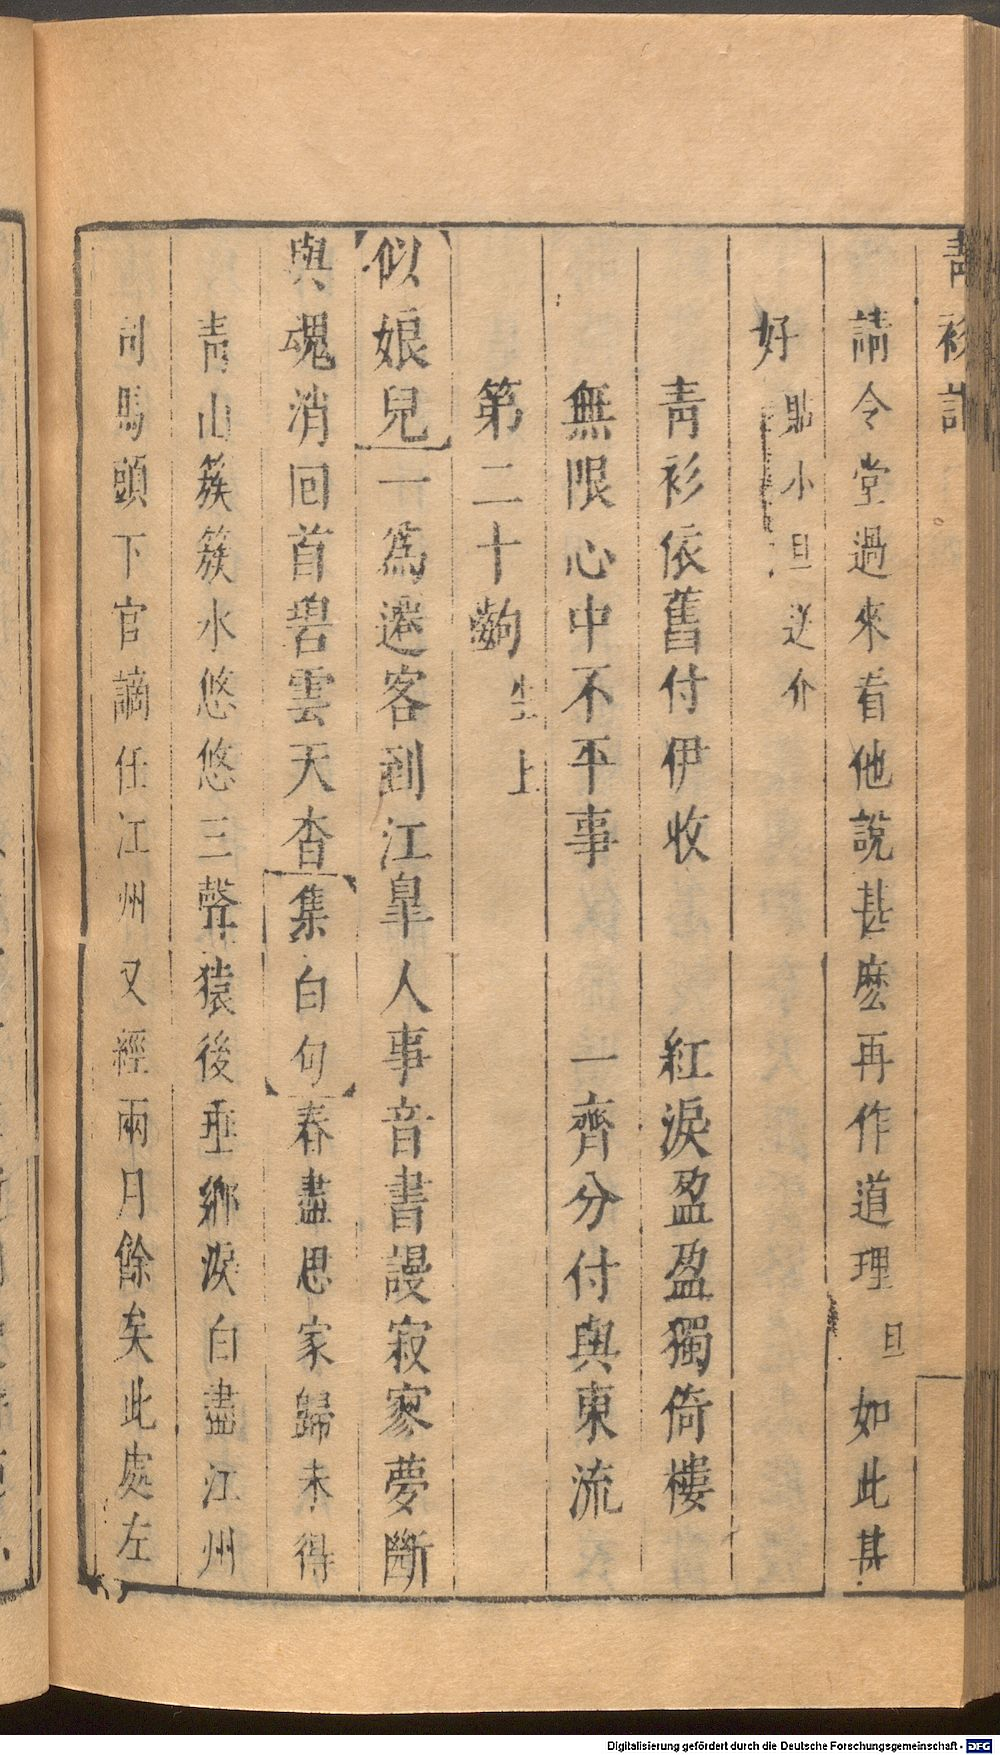 青衫記
請令堂過來看他說甚麽再作道理旦如此甚
好貼小旦送介
青衫依舊付伊收 紅淚盈盈獨倚樓
無限心中不平事 一齊分付與東流
第二十齣生上
似娘兒一爲遷客到江臯人事音書謾寂寥夢斷
與魂消回首碧雲天杳集白句春盡思家歸未得
靑山簇簇水悠悠三聲猿後垂鄉淚白盡江州
司馬頭下官謫任江州又經兩月餘矣此處左
Digitalisierung gefördert durch die Deutsche Forschungsgemeinschaft - DFG